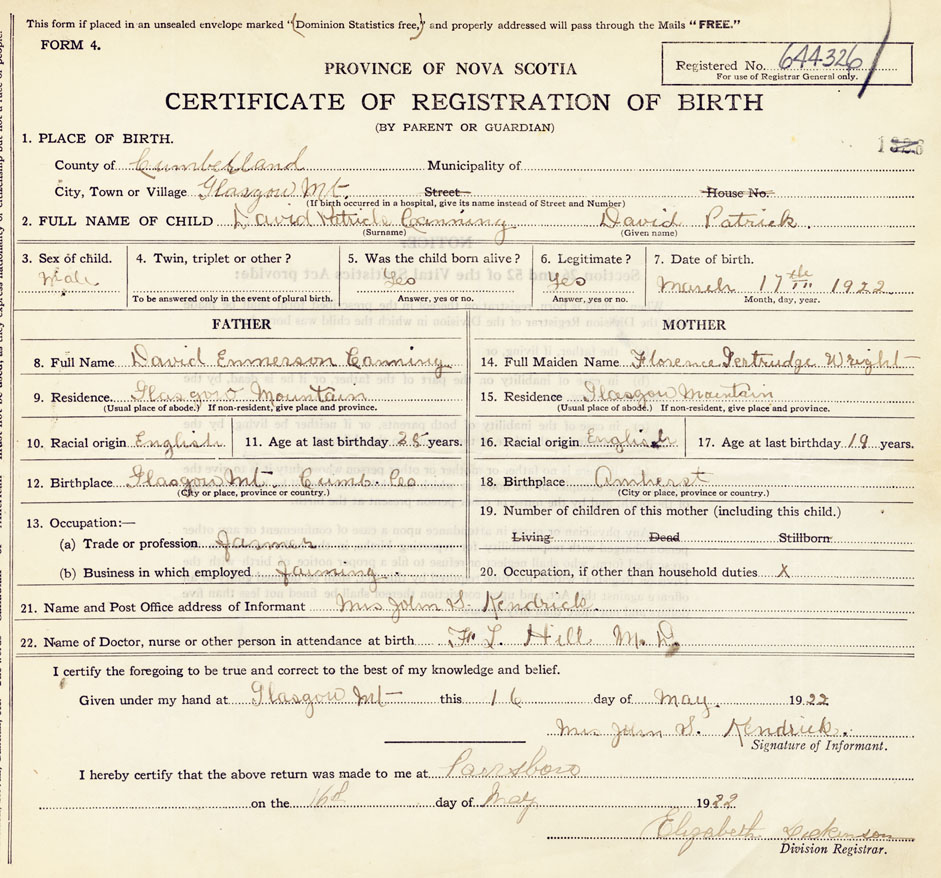 This form if placed in an unsealed envelope marked "(Dominion Statistics free,) and properly addressed will pass through the Mails "FREE."
FORM 4.
Registered No. 644326
For use of Registrar General only.
PROVINCE OF NOVA SCOTIA
CERTIFICATE OF REGISTRATION OF BIRTH
(BY PARENT OR GUARDIAN)
1. PLACE OF BIRTH.
County of Cumberland Municipality of
City, Town or Village Glasgow Mt Street House No.
(If birth occurred in a hospital, give its name instead of Street and Number)
2. FULL NAME OF CHILD David Patrick Canning David Patrick
(Surname) (Given name)
3. Sex of child. 4. Twin, triplet or other? 5. Was the child born alive? 6. Legitimate? 7. Date of birth.
Male Yes Yes March 17th 1922
To be answered only in the event of plural birth. Answer, yes or no. Answer, yes or no. Month, day, year.
FATHER MOTHER
8. Full Name David Emmerson Canning 14. Full Maiden Name Florence Gertrudge Wright
9. Residence. Glasgow Mountain 15. Residence Glasgow Mountain
(Usual place of abode.) If non-resident, give place and province. (Usual place of abode.) If non-resident, give place and province.
10. Racial origin English 11. Age at last birthday 28 years. 16. Racial origin English 17. Age at last birthday 19 years.
12. Birthplace Glasgow Mt. Cumb. Co 18. Birthplace Amherst
(City or place, province or country.) (City or place, province or country.)
13. Occupation:— 19. Number of children of this mother (including this child.)
(a) Trade or profession Farmer Living Dead Stillborn
(b) Business in which employed farming 20. Occupation, if other than household duties X
21. Name and Post Office address of Informant Mrs John S. Kendrick.
22. Name of Doctor, nurse or other person in attendance at birth F. L. Hill M.D.
I certify the foregoing to be true and correct to the best of my knowledge and belief.
Given under my hand at Glasgow Mt this 16 day of May. 1922
Mrs John S. Kendrick.
Signature of Informant.
I hereby certify that the above return was made to me at Parrsboro
on the 16th day of May 1922
Elizabeth Dickinson
Division Registrar.